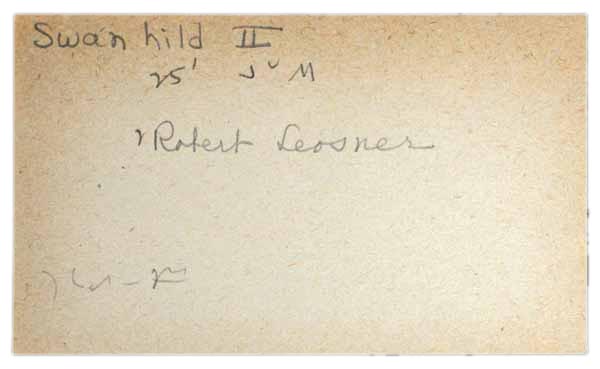 Swanhild II
25' J" M
Robert Leosner